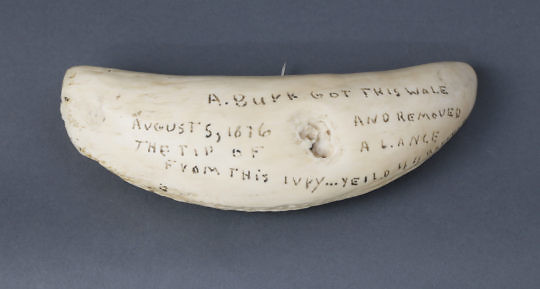 A. BURK GOT THIS WALE
AUGUST 5, 1876 AND REMOVED
THE TIP OF A LANCE
FROM THIS IVRY...YEILD